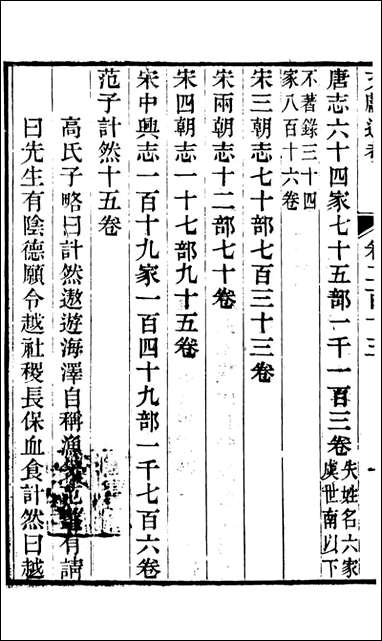 文獻通考 卷二百十三
唐志六十四家七十五部一千一百三卷失姓名六家虞世南以下
不著錄三十四家八百十六卷
宋三朝志七十部七百三十三卷
宋兩朝志十二部七十卷
宋四朝志一十七部九十五卷
宋中興志一百一十九家一百四十九部一千七百六卷
范子計然十五卷
高氏子畧曰計然遨遊海澤自稱漁父范蠡有請
曰先生有陰德願令越社稷長保血食計然曰越